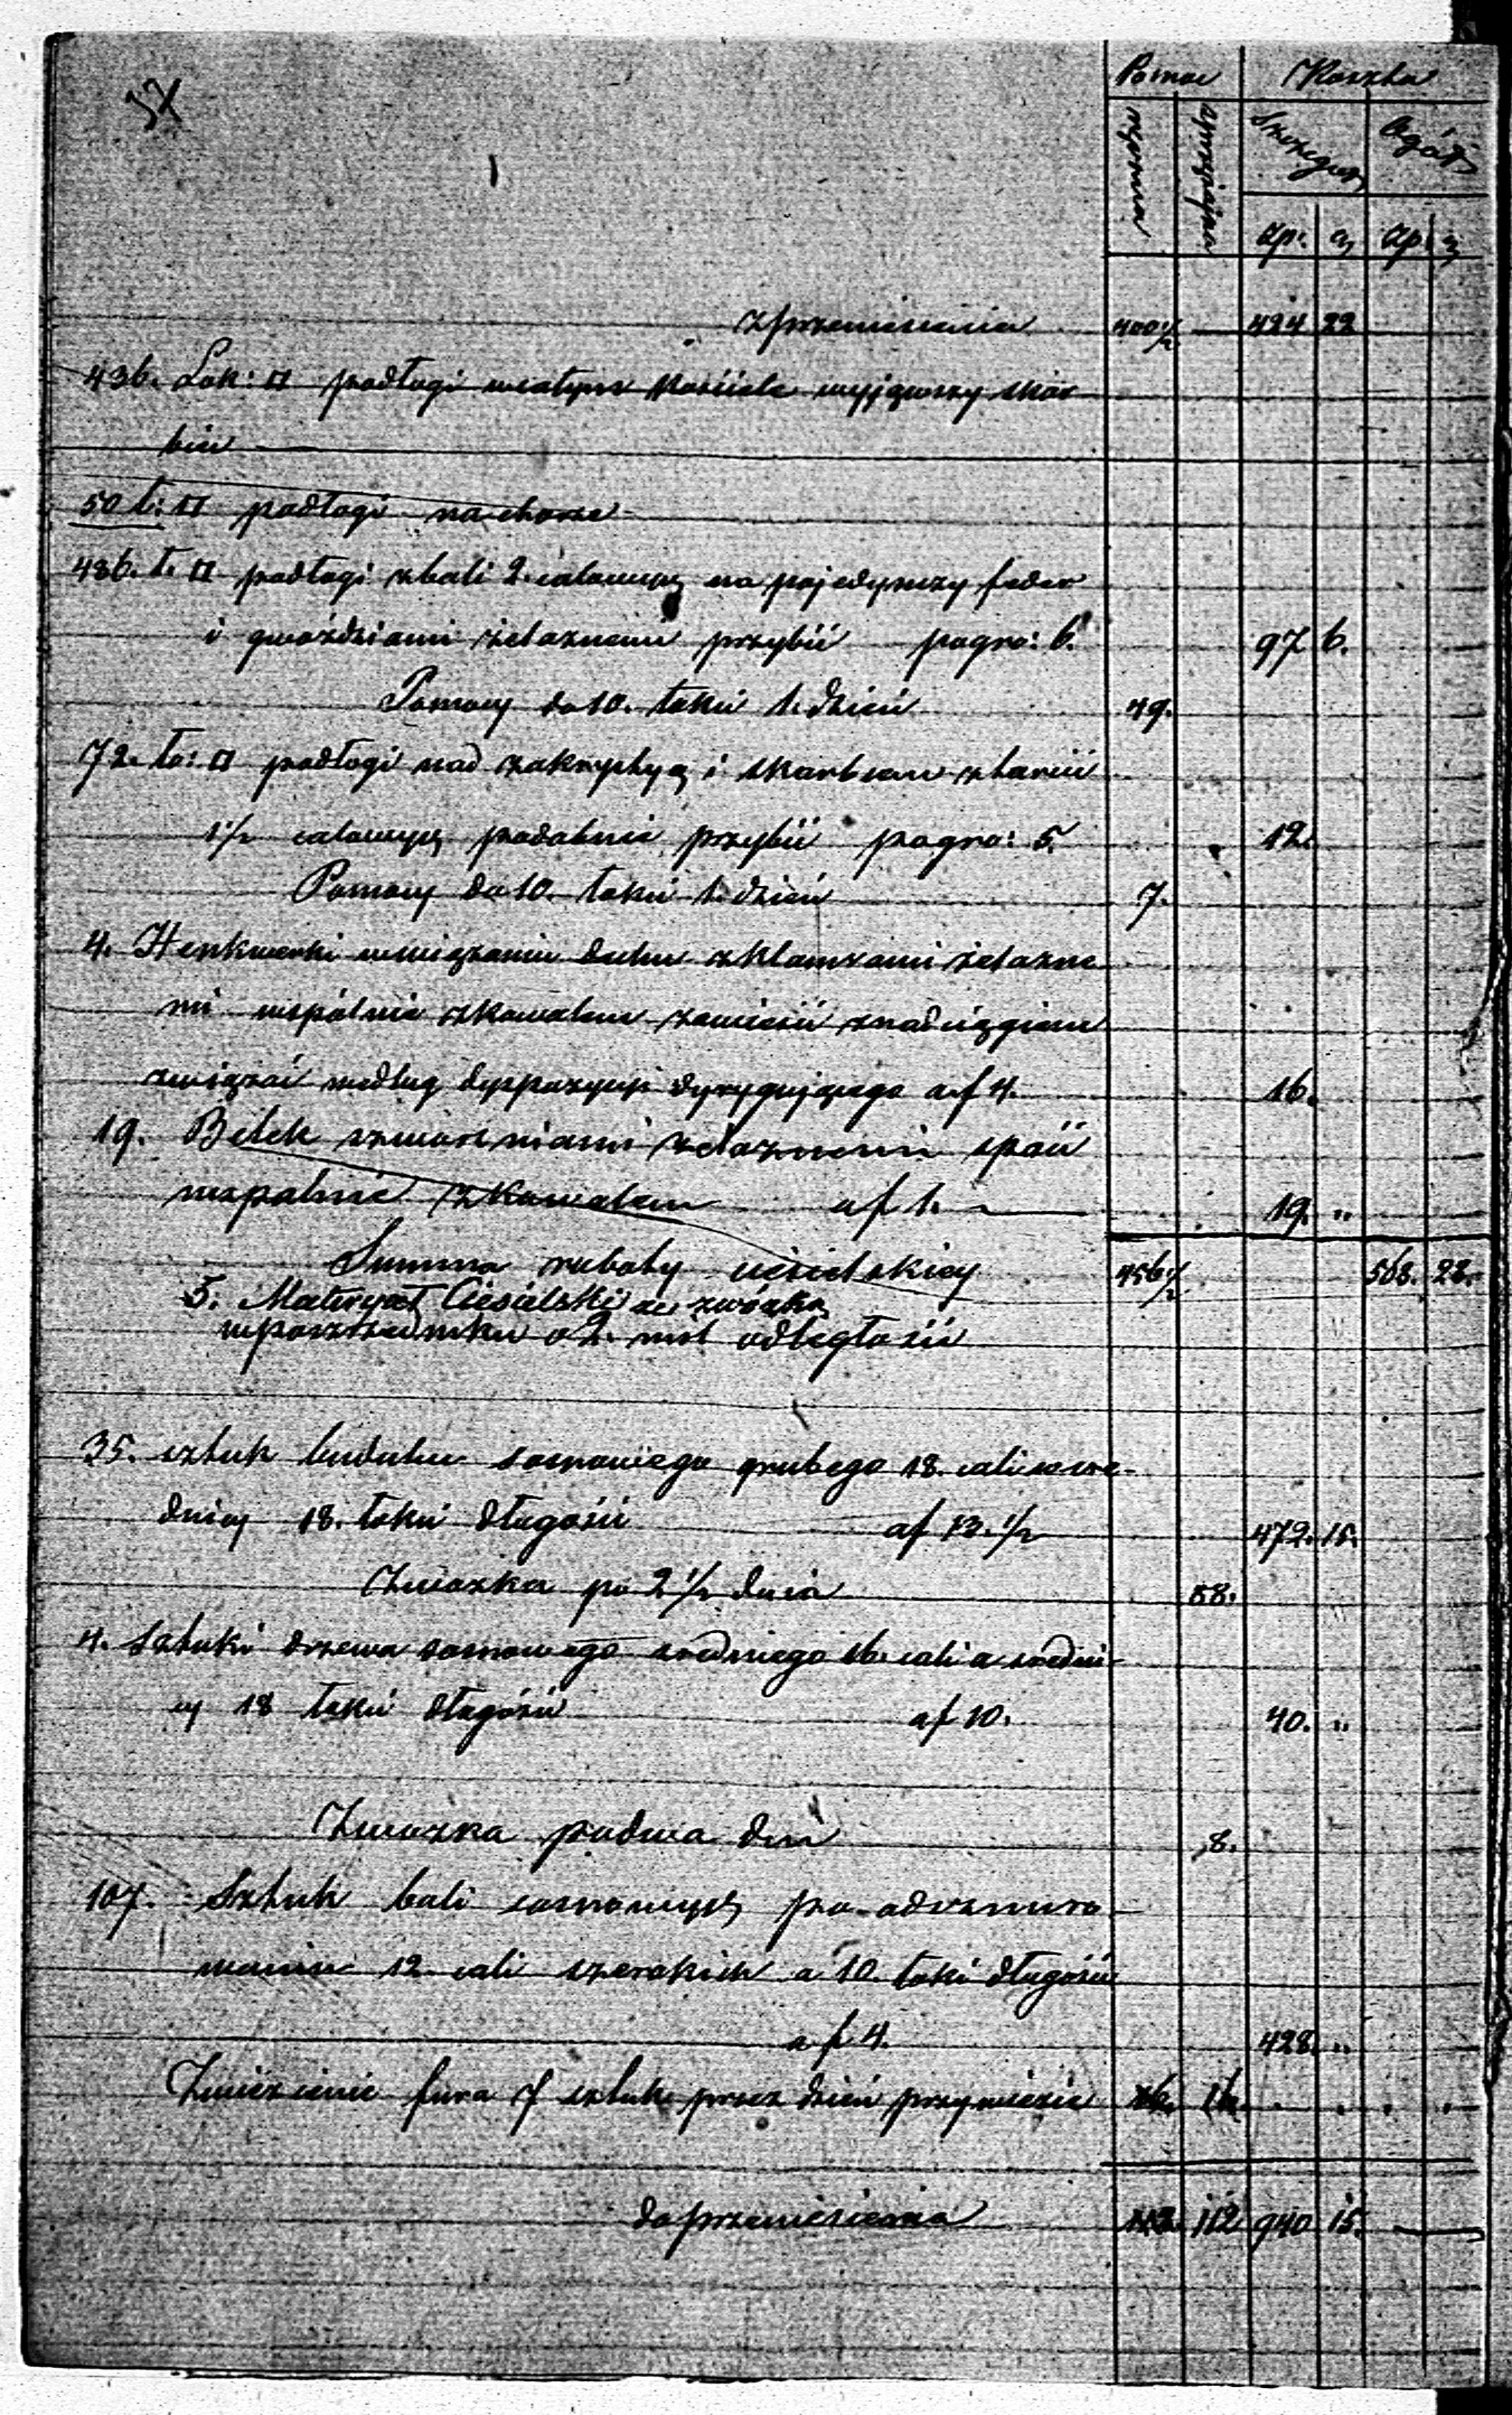 Pomoc Koszta
ręczna sprzężajna Szczeguł Ogół
zp: g zp. g
z przeniesienia 400½ 424 22
436. Łok: □ podłogi w całym kościele wyjąwszy skar
biec
50 ł: □ podłogi na chorze
486. ł. □ podłogi z bali 2. calowych na pojedynczy feder
i gwoździami żelaznemi przybić po gro: 6. 97 6.
Pomocy do 10. łokci 1. dzień 49.
72. ło: □ podłogi nad zakrystyą i skarbcem z tarcic
1½ calowych podobnie przybić po gro: 5. 12.
Pomocy do 10. łokci 1. dzień 7.
4. Henkwerki w wiązaniu dachu z klamrami żelazne
mi wspólnie z kowalem zawiesić z nadciągiem
związać według dyspozycyi dyrygującego a f 4. 16.
19. Belek szworniami żelaznemi spoić
wspólnie z kowalem a f 1. 19. "
Summa roboty ciesielskiey 456½ 568. 28.
5. Materyał Ciesielski ze zwózką
w poszrzedniku o 2. mil odległości
35. sztuk budulcu sosnowego grubego 18. cali w sre-
dnicy 18. łokci długości a f 13.½ 472. 15.
Zwózka po 2½ dnia 88.
4. Sztuki drzewa sosnowego średniego 16. cali a średni-
cy 18 łokci długości a f 10. 40. "
Zwózka po dwa dni 8.
107. Sztuk bali sosnowych po odrznuro
waniu 12. cali szerokich a 10. łokci długości
a f 4. 428. "
Zwiezienie fura 7 sztuk przez dzień przywiezie 16.
do przeniesienia 112 940 15.